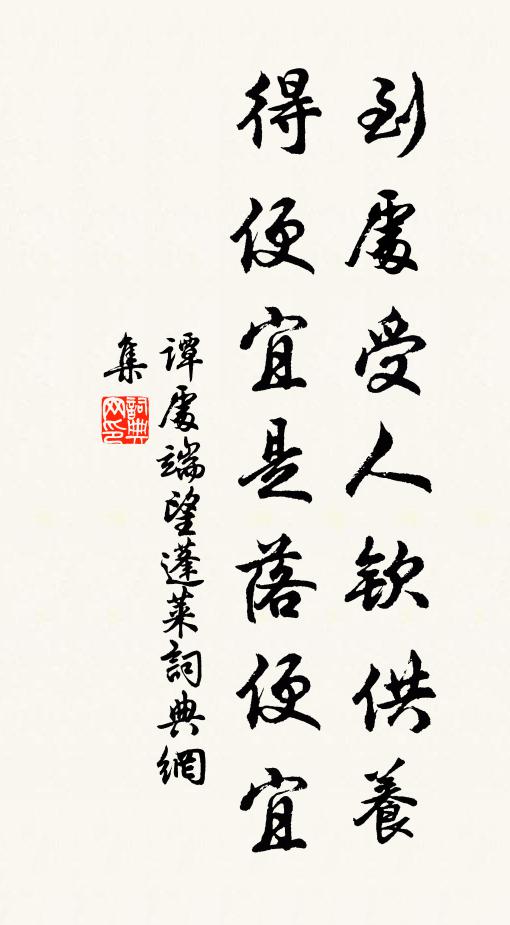 到處受人欽供養
得便宜是落便宜
譚處端望蓬萊詞典網
集
詞典网印